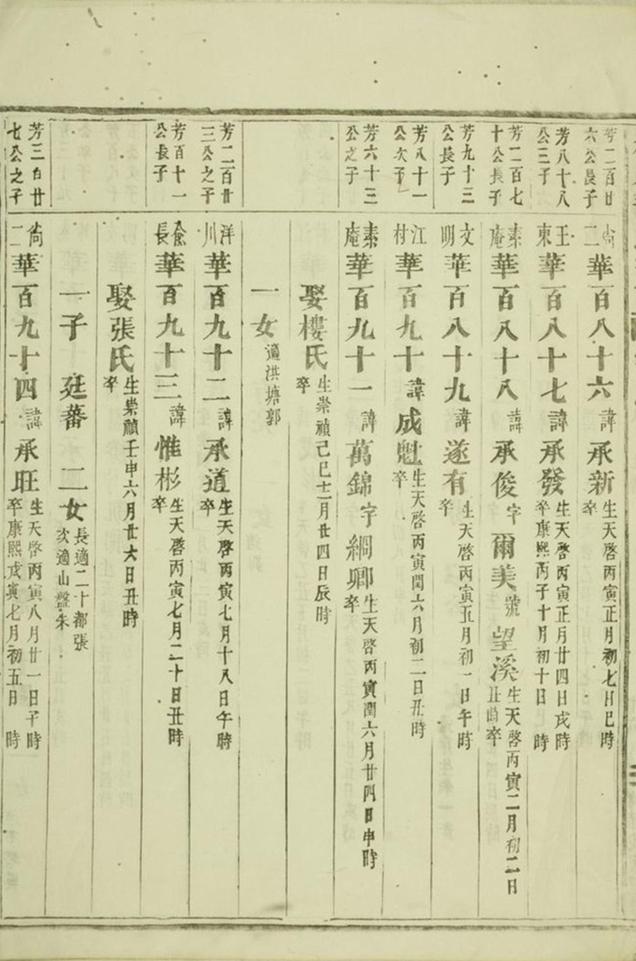 芳二百廿六公長子 尚二 華百八十六 諱 承新 生天啓丙寅正月初七日巳時 卒
芳八十八公三子 王東 華百八十七 諱 承發 生天啓丙寅正月廿四日戌時 卒康熙丙子十月初十日 時
芳二百七十公長子 素庵 華百八十八 諱 承俊 字 爾美 號 望溪 生天啓丙寅二月初二日丑時 卒
芳九十三公長子 文明 華百八十九 諱 遂有 生天啓丙寅五月初一日午時 卒
芳八十一公次子 江村 華百九十 諱 成魁 生天啓丙寅閏六月初二日丑時 卒
芳六十三公之子 素庵 華百九十一 諱 萬錦 字 綱卿 生天啓丙寅閏六月廿四日申時 卒
娶樓氏 生崇禎己巳十二月廿四日辰時 卒
一女 適洪塘郭
芳二百廿三公之子 洋川 華百九十二 諱 承道 生天啓丙寅七月十八日午時 卒
芳百十一公長子 長 華百九十三 諱 惟彬 生天啓丙寅七月二十日丑時 卒
娶張氏 生崇禎壬申六月廿六日丑時 卒
一子 廷蕃 二女 長適二十都張 次適山盤朱
芳三百廿七公之子 尚二 華百九十四 諱 承旺 生天啓丙寅八月廿一日子時 卒康熙戊寅七月初五日 時